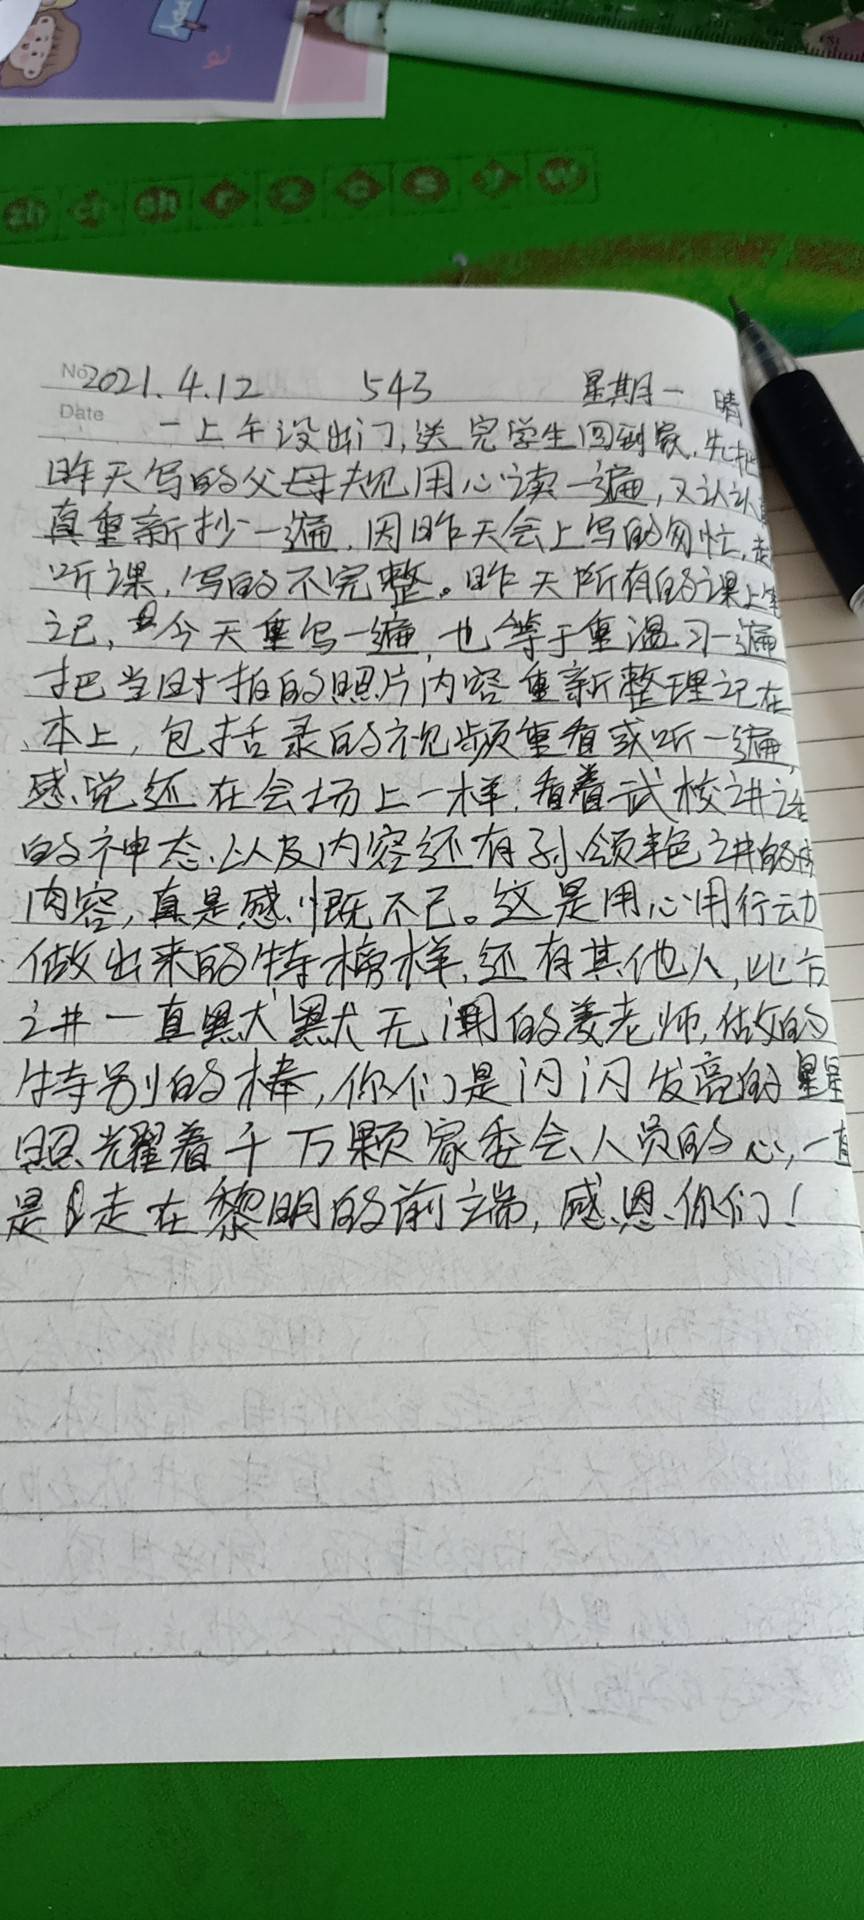 zh ch sh r z c s y w
No.
2021.4.12 543 星期一 晴
Date
一上午没出门,送完学生回到家,先把
昨天写的父母规用心读一遍,又认认真
真重新抄一遍,因昨天会上写的匆忙,走
听课,写的不完整。昨天所有的课上笔
记,今天重写一遍,也等于重温习一遍
把当时拍的照片内容重新整理记在
本上,包括录的视频重看或听一遍,
感觉还在会场上一样,看着武校讲话
的神态,以及内容还有孙领艳讲的
内容,真是感慨不已。这是用心用行动
做出来的特榜样,还有其他人,比方
讲一直默默无闻的姜老师,做的
特别的棒,你们是闪闪发亮的星星
照耀着千万颗家委会人员的心,一直
是走在黎明的前端,感恩你们!